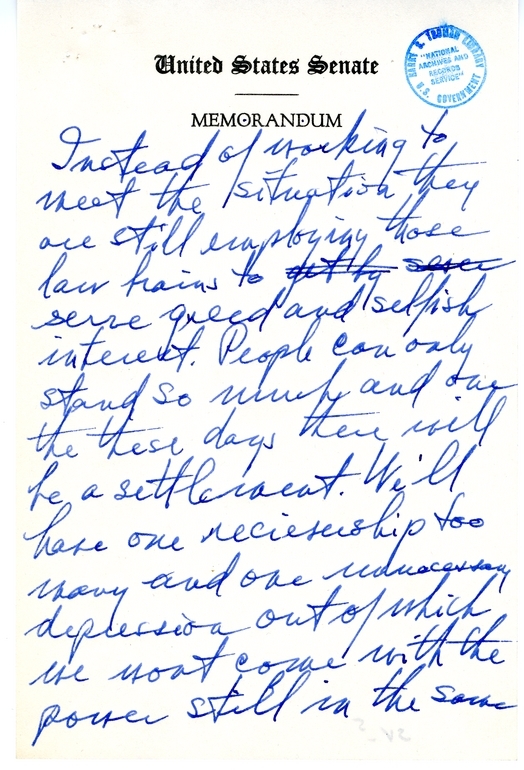 United States Senate
MEMORANDUM
HARRY S. TRUMAN LIBRARY
"NATIONAL
ARCHIVES AND
RECORDS
SERVICE"
U.S. GOVERNMENT
Instead of working to
meet the situation they
are still employing those
law brains to get by
serve greed and selfish
interest. People can only
stand so much and one
the these days there will
be a settlement. We'll
have one recieversship too
many and one unnecessary
depression out of which
we wont come with the
power still in the same